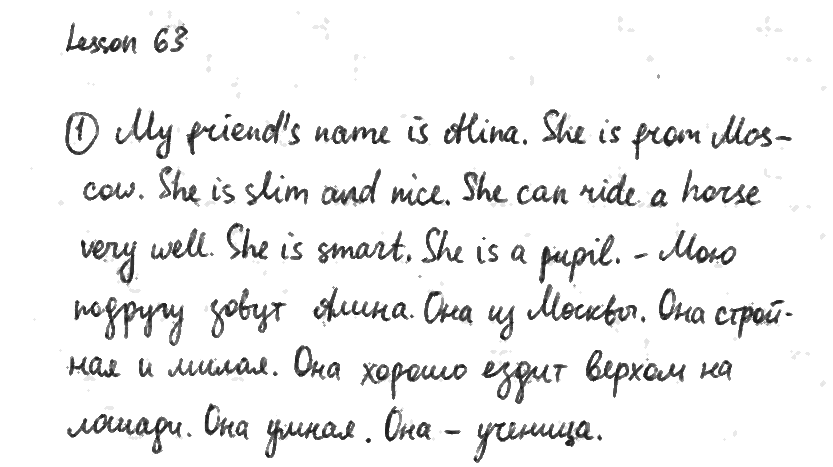 Lesson 63
① My friend's name is Alina. She is from Mos-
cow. She is slim and nice. She can ride a horse
very well. She is smart. She is a pupil. – Мою
подругу зовут Алина. Она из Москвы. Она строй-
ная и милая. Она хорошо ездит верхом на
лошади. Она умная. Она – ученица.